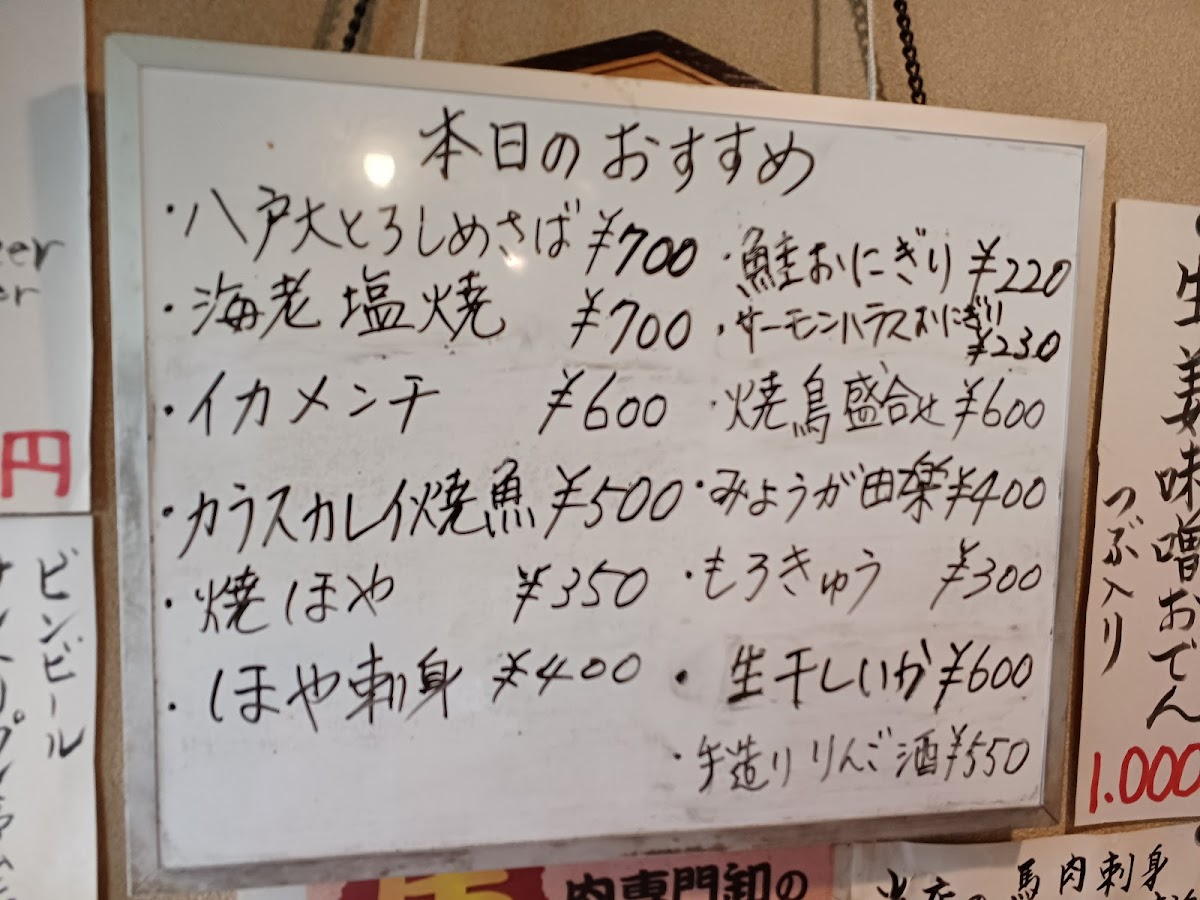 本日のおすすめ
・八戸大とろしめさば ¥700
・海老塩焼 ¥700
・イカメンチ ¥600
・カラスカレイ焼魚 ¥500
・焼ほや ¥350
・ほや刺身 ¥400
・鮭おにぎり ¥220
・サーモンハラスおにぎり
¥230
・焼鳥盛合せ ¥600
・みょうが田楽 ¥400
・もろきゅう ¥300
・生干しいか ¥600
・手造りりんご酒 ¥550
生姜味噌おでん
つぶ入り
1.000
円
ビンビール
肉専門卸の
馬肉刺身